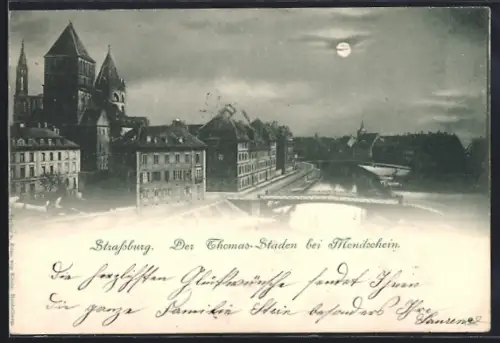 Straßburg. Der Thomas-Staden bei Mondschein.
Die herzlichsten Glückwünsche sendet Ihnen
die ganze Familie Stein besonders Ihre